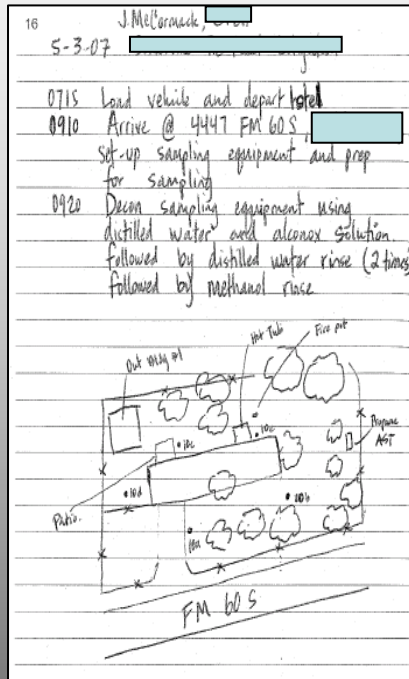 16
J. McCormack,
5-3-07
0715 Load vehicle and depart hotel
0910 Arrive @ 4447 FM 60 S,
set-up sampling equipment and prep
for sampling
0920 Decon sampling equipment using
distilled water and alconox solution
followed by distilled water rinse (2 times)
followed by methanol rinse
Hot Tub
Fire pit
Out Bldg #1
Propane
AST
10c
10d
10b
Patio
10a
FM 60 S